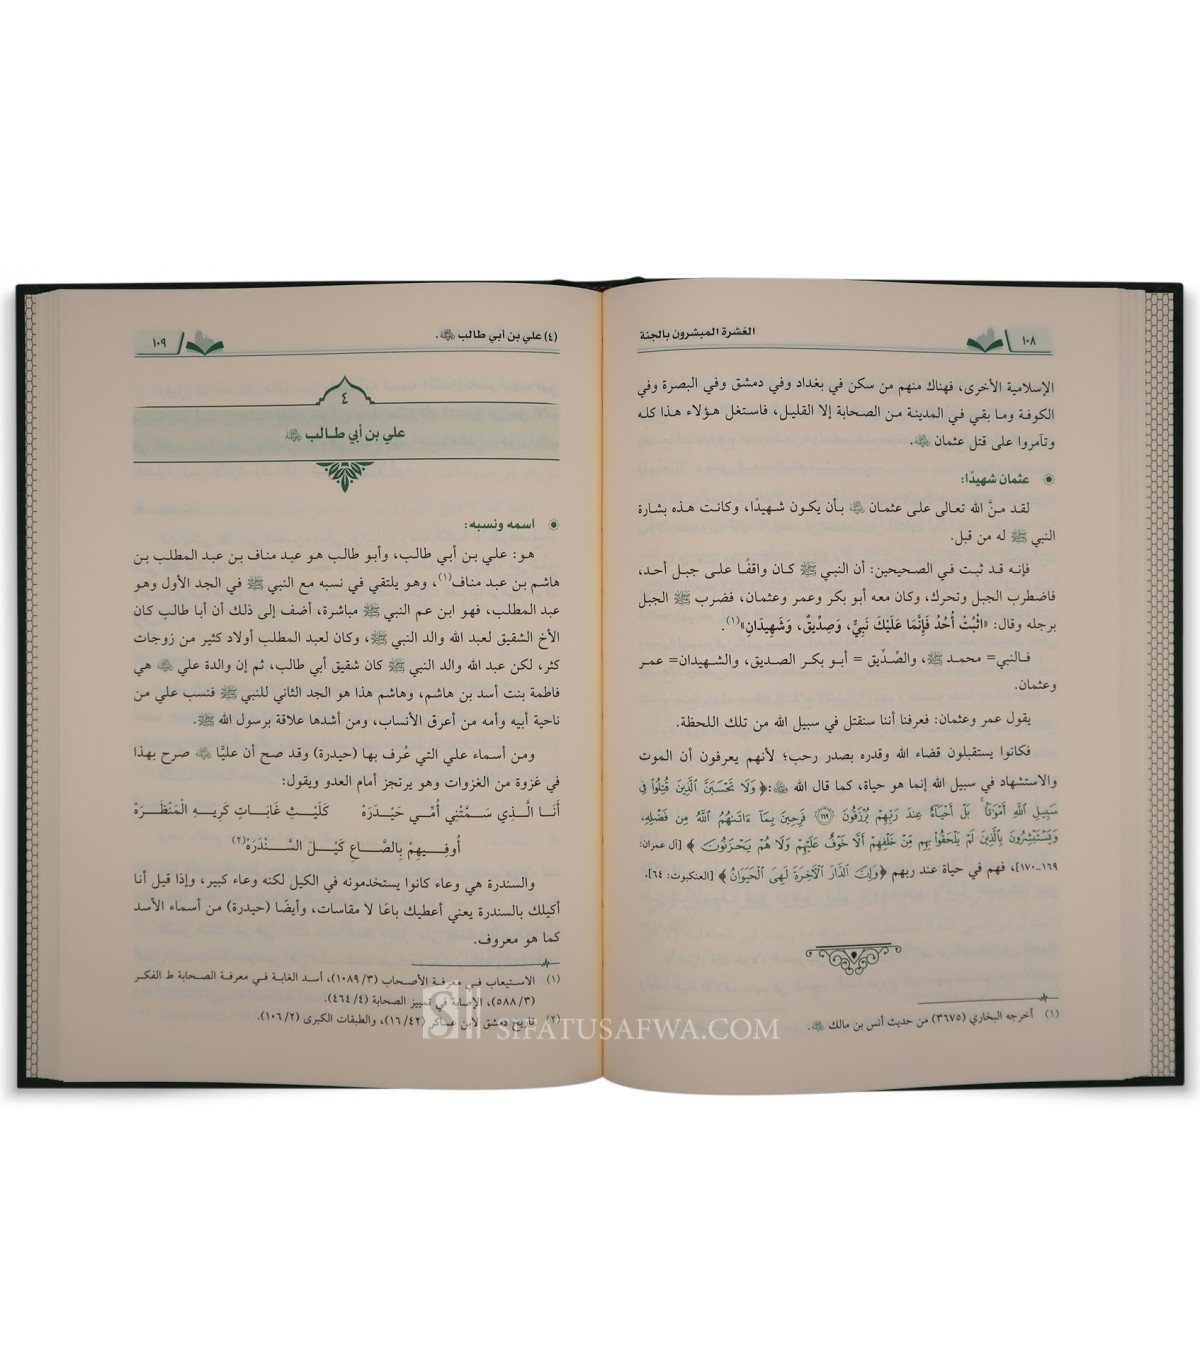 ١٠٨
العشرة المبشرون بالجنة
الإسلامية الأخرى، فهناك منهم من سكن في بغداد وفي دمشق وفي البصرة وفي
الكوفة وما بقي في المدينة من الصحابة إلا القليل، فاستغل هؤلاء هذا كله
وتآمروا على قتل عثمان ﵁.
عثمان شهيدًا:
لقد منَّ الله تعالى على عثمان ﵁ بأن يكون شهيدًا، وكانت هذه بشارة
النبي ﷺ له من قبل.
فإنه قد ثبت في الصحيحين: أن النبي ﷺ كان واقفًا على جبل أحد،
فاضطرب الجبل وتحرك، وكان معه أبو بكر وعمر وعثمان، فضرب ﷺ الجبل
برجله وقال: «اثْبُتْ أُحُدُ فَإِنَّمَا عَلَيْكَ نَبِيٌّ، وَصِدِّيقٌ، وَشَهِيدَانِ»(١).
فالنبي= محمد ﷺ، والصِّدِّيق = أبو بكر الصديق، والشهيدان= عمر
وعثمان.
يقول عمر وعثمان: فعرفنا أننا سنقتل في سبيل الله من تلك اللحظة.
فكانوا يستقبلون قضاء الله وقدره بصدر رحب؛ لأنهم يعرفون أن الموت
والاستشهاد في سبيل الله إنما هو حياة، كما قال الله ﷻ: ﴿وَلَا تَحْسَبَنَّ الَّذِينَ قُتِلُوا فِي
سَبِيلِ اللَّهِ أَمْوَاتًا ۚ بَلْ أَحْيَاءٌ عِندَ رَبِّهِمْ يُرْزَقُونَ ١٦٩ فَرِحِينَ بِمَا ءَاتَىٰهُمُ اللَّهُ مِن فَضْلِهِ،
وَيَسْتَبْشِرُونَ بِالَّذِينَ لَمْ يَلْحَقُوا بِهِم مِّنْ خَلْفِهِمْ أَلَّا خَوْفٌ عَلَيْهِمْ وَلَا هُمْ يَحْزَنُونَ﴾ [آل عمران:
١٦٩-١٧٠]، فهم في حياة عند ربهم ﴿وَإِنَّ الدَّارَ الْآخِرَةَ لَهِيَ الْحَيَوَانُ﴾ [العنكبوت: ٦٤].
(١) أخرجه البخاري (٣٦٧٥) من حديث أنس بن مالك ﵁.
(٤) علي بن أبي طالب ﵁.
١٠٩
٤
علي بن أبي طالب ﵁
اسمه ونسبه:
هو: علي بن أبي طالب، وأبو طالب هو عبد مناف بن عبد المطلب بن
هاشم بن عبد مناف(١)، وهو يلتقي في نسبه مع النبي ﷺ في الجد الأول وهو
عبد المطلب، فهو ابن عم النبي ﷺ مباشرة، أضف إلى ذلك أن أبا طالب كان
الأخ الشقيق لعبد الله والد النبي ﷺ، وكان لعبد المطلب أولاد كثير من زوجات
كثر، لكن عبد الله والد النبي ﷺ كان شقيق أبي طالب، ثم إن والدة علي ﵁ هي
فاطمة بنت أسد بن هاشم، وهاشم هذا هو الجد الثاني للنبي ﷺ فنسب علي من
ناحية أبيه وأمه من أعرق الأنساب، ومن أشدها علاقة برسول الله ﷺ.
ومن أسماء علي التي عُرف بها (حيدرة) وقد صح أن عليًّا ﵁ صرح بهذا
في غزوة من الغزوات وهو يرتجز أمام العدو ويقول:
أَنَا الَّذِي سَمَّتْنِي أُمِّي حَيْدَرَهْ كَلَيْثِ غَابَاتٍ كَرِيهِ الْمَنْظَرَهْ
أُوفِيهِمْ بِالصَّاعِ كَيْلَ السَّنْدَرَهْ(٢)
والسندرة هي وعاء كانوا يستخدمونه في الكيل لكنه وعاء كبير، وإذا قيل أنا
أكيلك بالسندرة يعني أعطيك باعًا لا مقاسات، وأيضًا (حيدرة) من أسماء الأسد
كما هو معروف.
(١) الاستيعاب في معرفة الأصحاب (٣/ ١٠٨٩)، أسد الغابة في معرفة الصحابة ط الفكر
(٣/ ٥٨٨)، الإصابة في تمييز الصحابة (٤/ ٤٦٤).
(٢) تاريخ دمشق لابن عساكر (٤٢/ ١٦)، والطبقات الكبرى (٢/ ١٠٦).
SIFATUSAFWA.COM